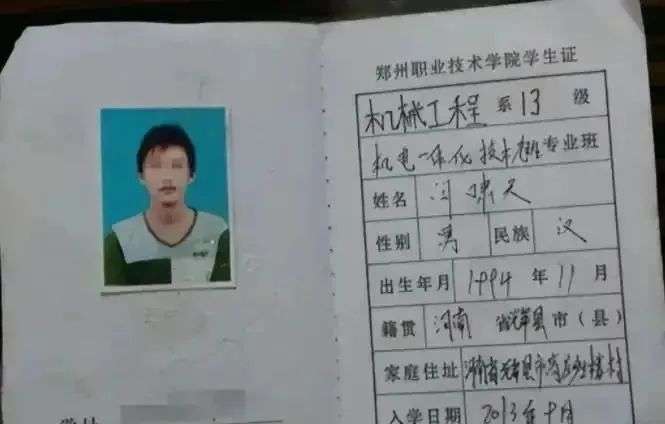 郑州职业技术学院学生证
机械工程 系 13 级
机电一体化技术 专业班
姓名 闫啸天
性别 男 民族 汉
出生年月 1994 年 11 月
籍贯 河南 省辉县市（县）
家庭住址 河南省辉县市高庄乡 村
入学日期 2013年 月